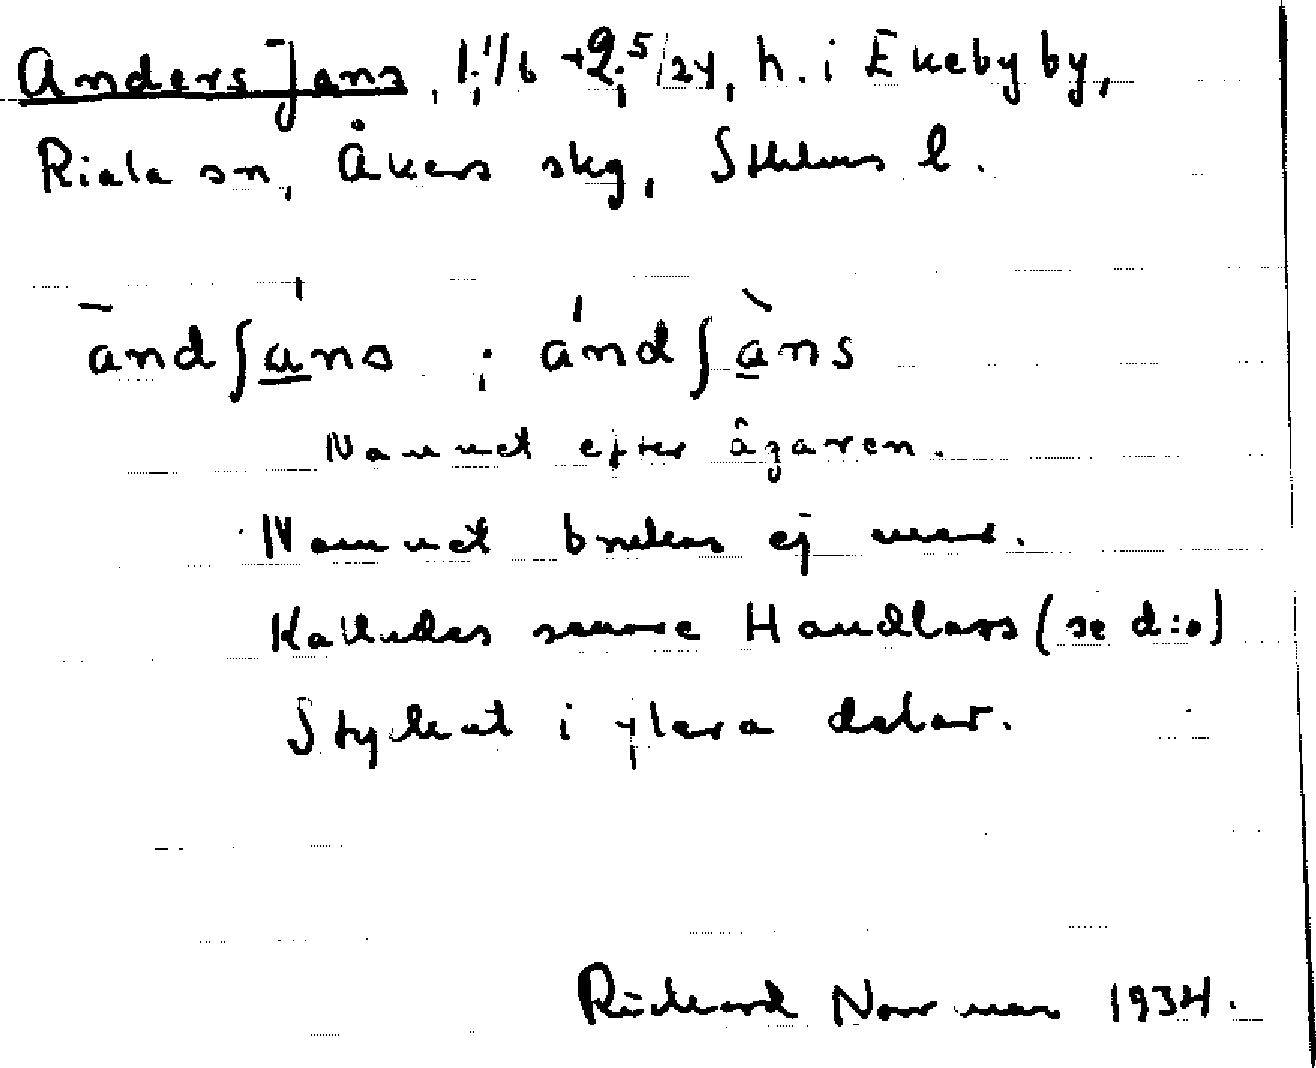 Anders Jans, 1:1/6 + 2:5/24, h. i Ekeby by,
Riala sn, Åkers skg, Sthlms l.
andʃa̲ns ; andʃa̲ns
Namnet efter ägaren.
Namnet brukas ej mera.
Kallades senare Handlars (se d:o)
Styckat i flera delar.
Richard Norrman 1934.